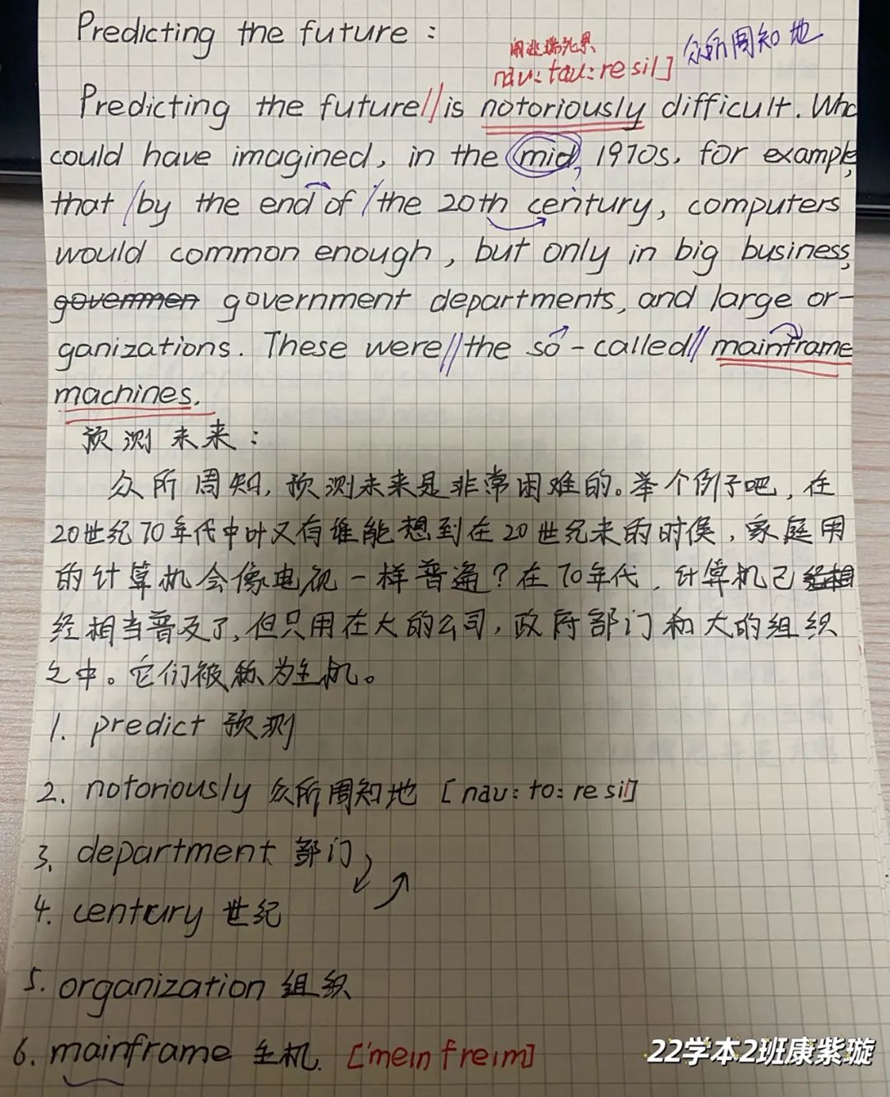 Predicting the future :
众所周知地
nau: tau: resil]
Predicting the future//is notoriously difficult. Who
could have imagined, in the mid, 1970s, for example,
that /by the end of /the 20th century, computers
would common enough, but only in big business,
govermen government departments, and large or-
ganizations. These were//the so-called//mainframe
machines.
预测未来:
众所周知,预测未来是非常困难的。举个例子吧,在
20世纪70年代中叶又有谁能想到在20世纪末的时候,家庭用
的计算机会像电视一样普遍?在70年代,计算机已经相
经相当普及了,但只用在大的公司,政府部门和大的组织
之中。它们被称为主机。
1. predict 预测
2. notoriously 众所周知地 [nau:to:resil]
3. department 部门
4. century 世纪
5. organization 组织
6. mainframe 主机 ['mein freim]
22学本2班康紫璇